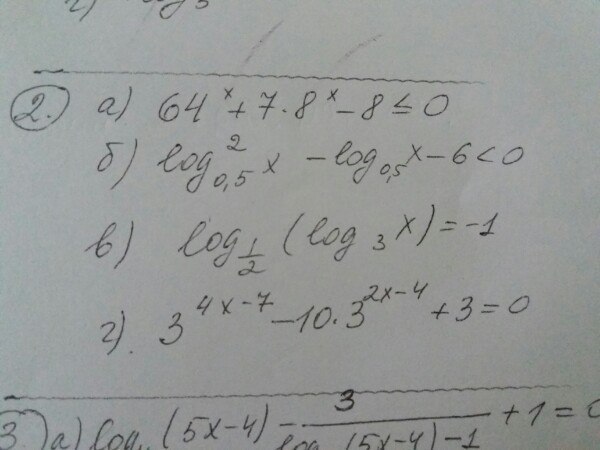 2. а) 64^x + 7·8^x − 8 ≤ 0
б) log²_{0,5} x − log_{0,5} x − 6 < 0
в) log_{1/2} (log_3 x) = −1
г) 3^{4x−7} − 10·3^{2x−4} + 3 = 0
3. а) log (5x−4) − 3/(log (5x−4) − 1) + 1 =